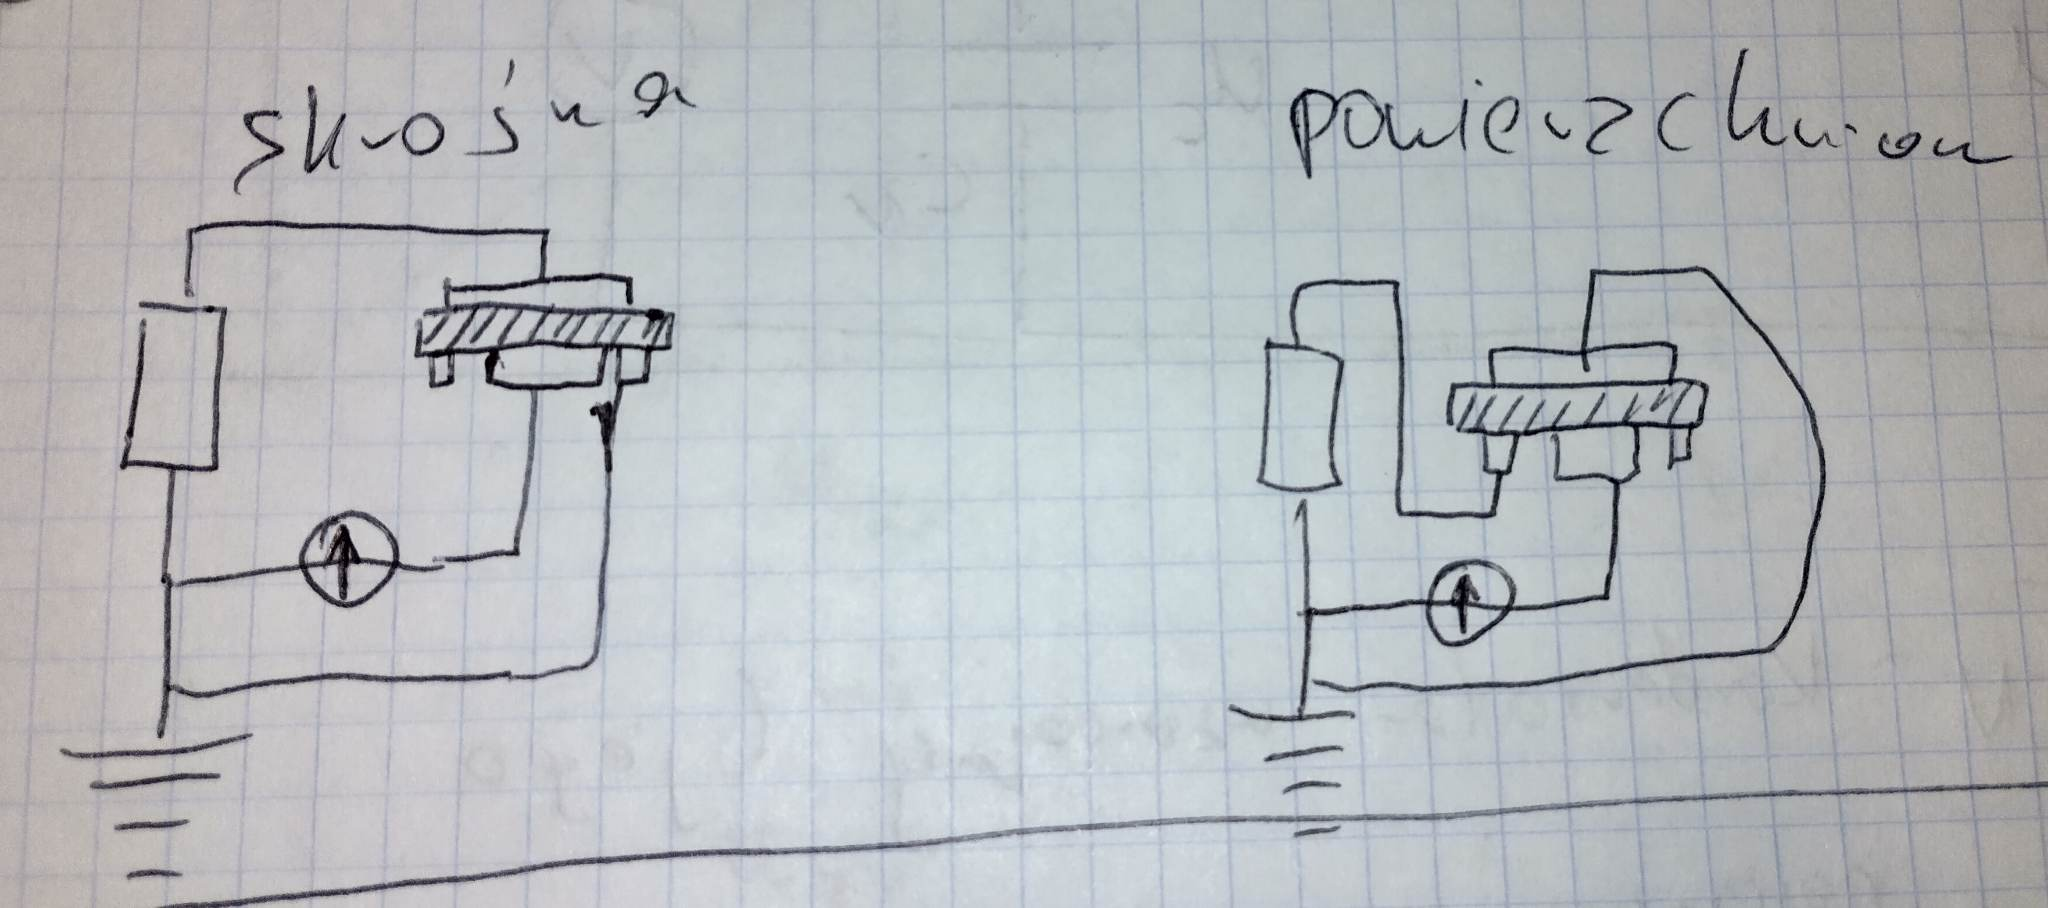 skrośna
powierzchniow